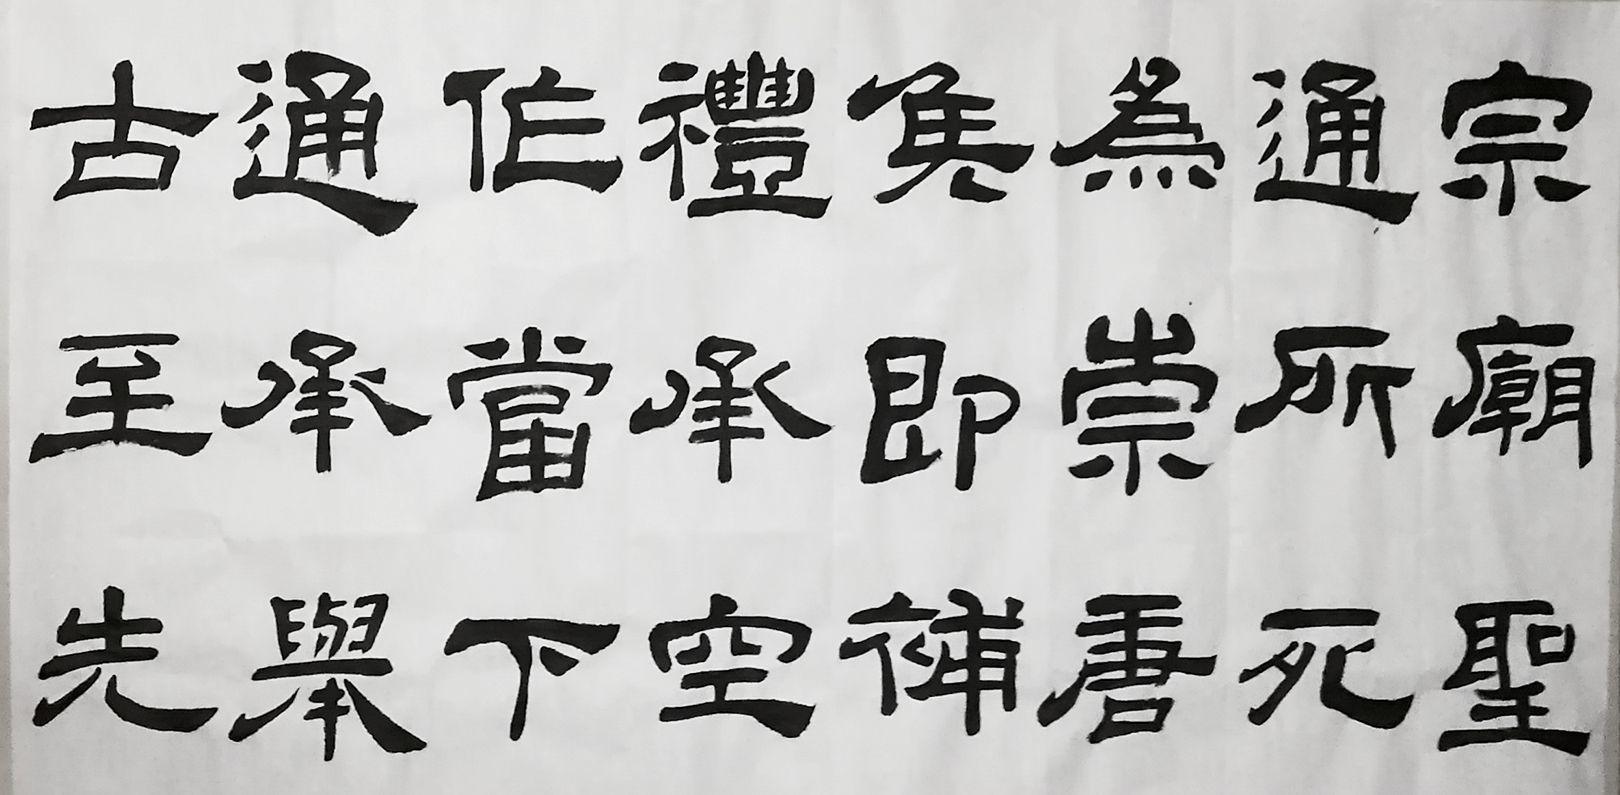 宗廟聖
通所死
為崇唐
即補
禮承空
作當下
通承舉
古至先